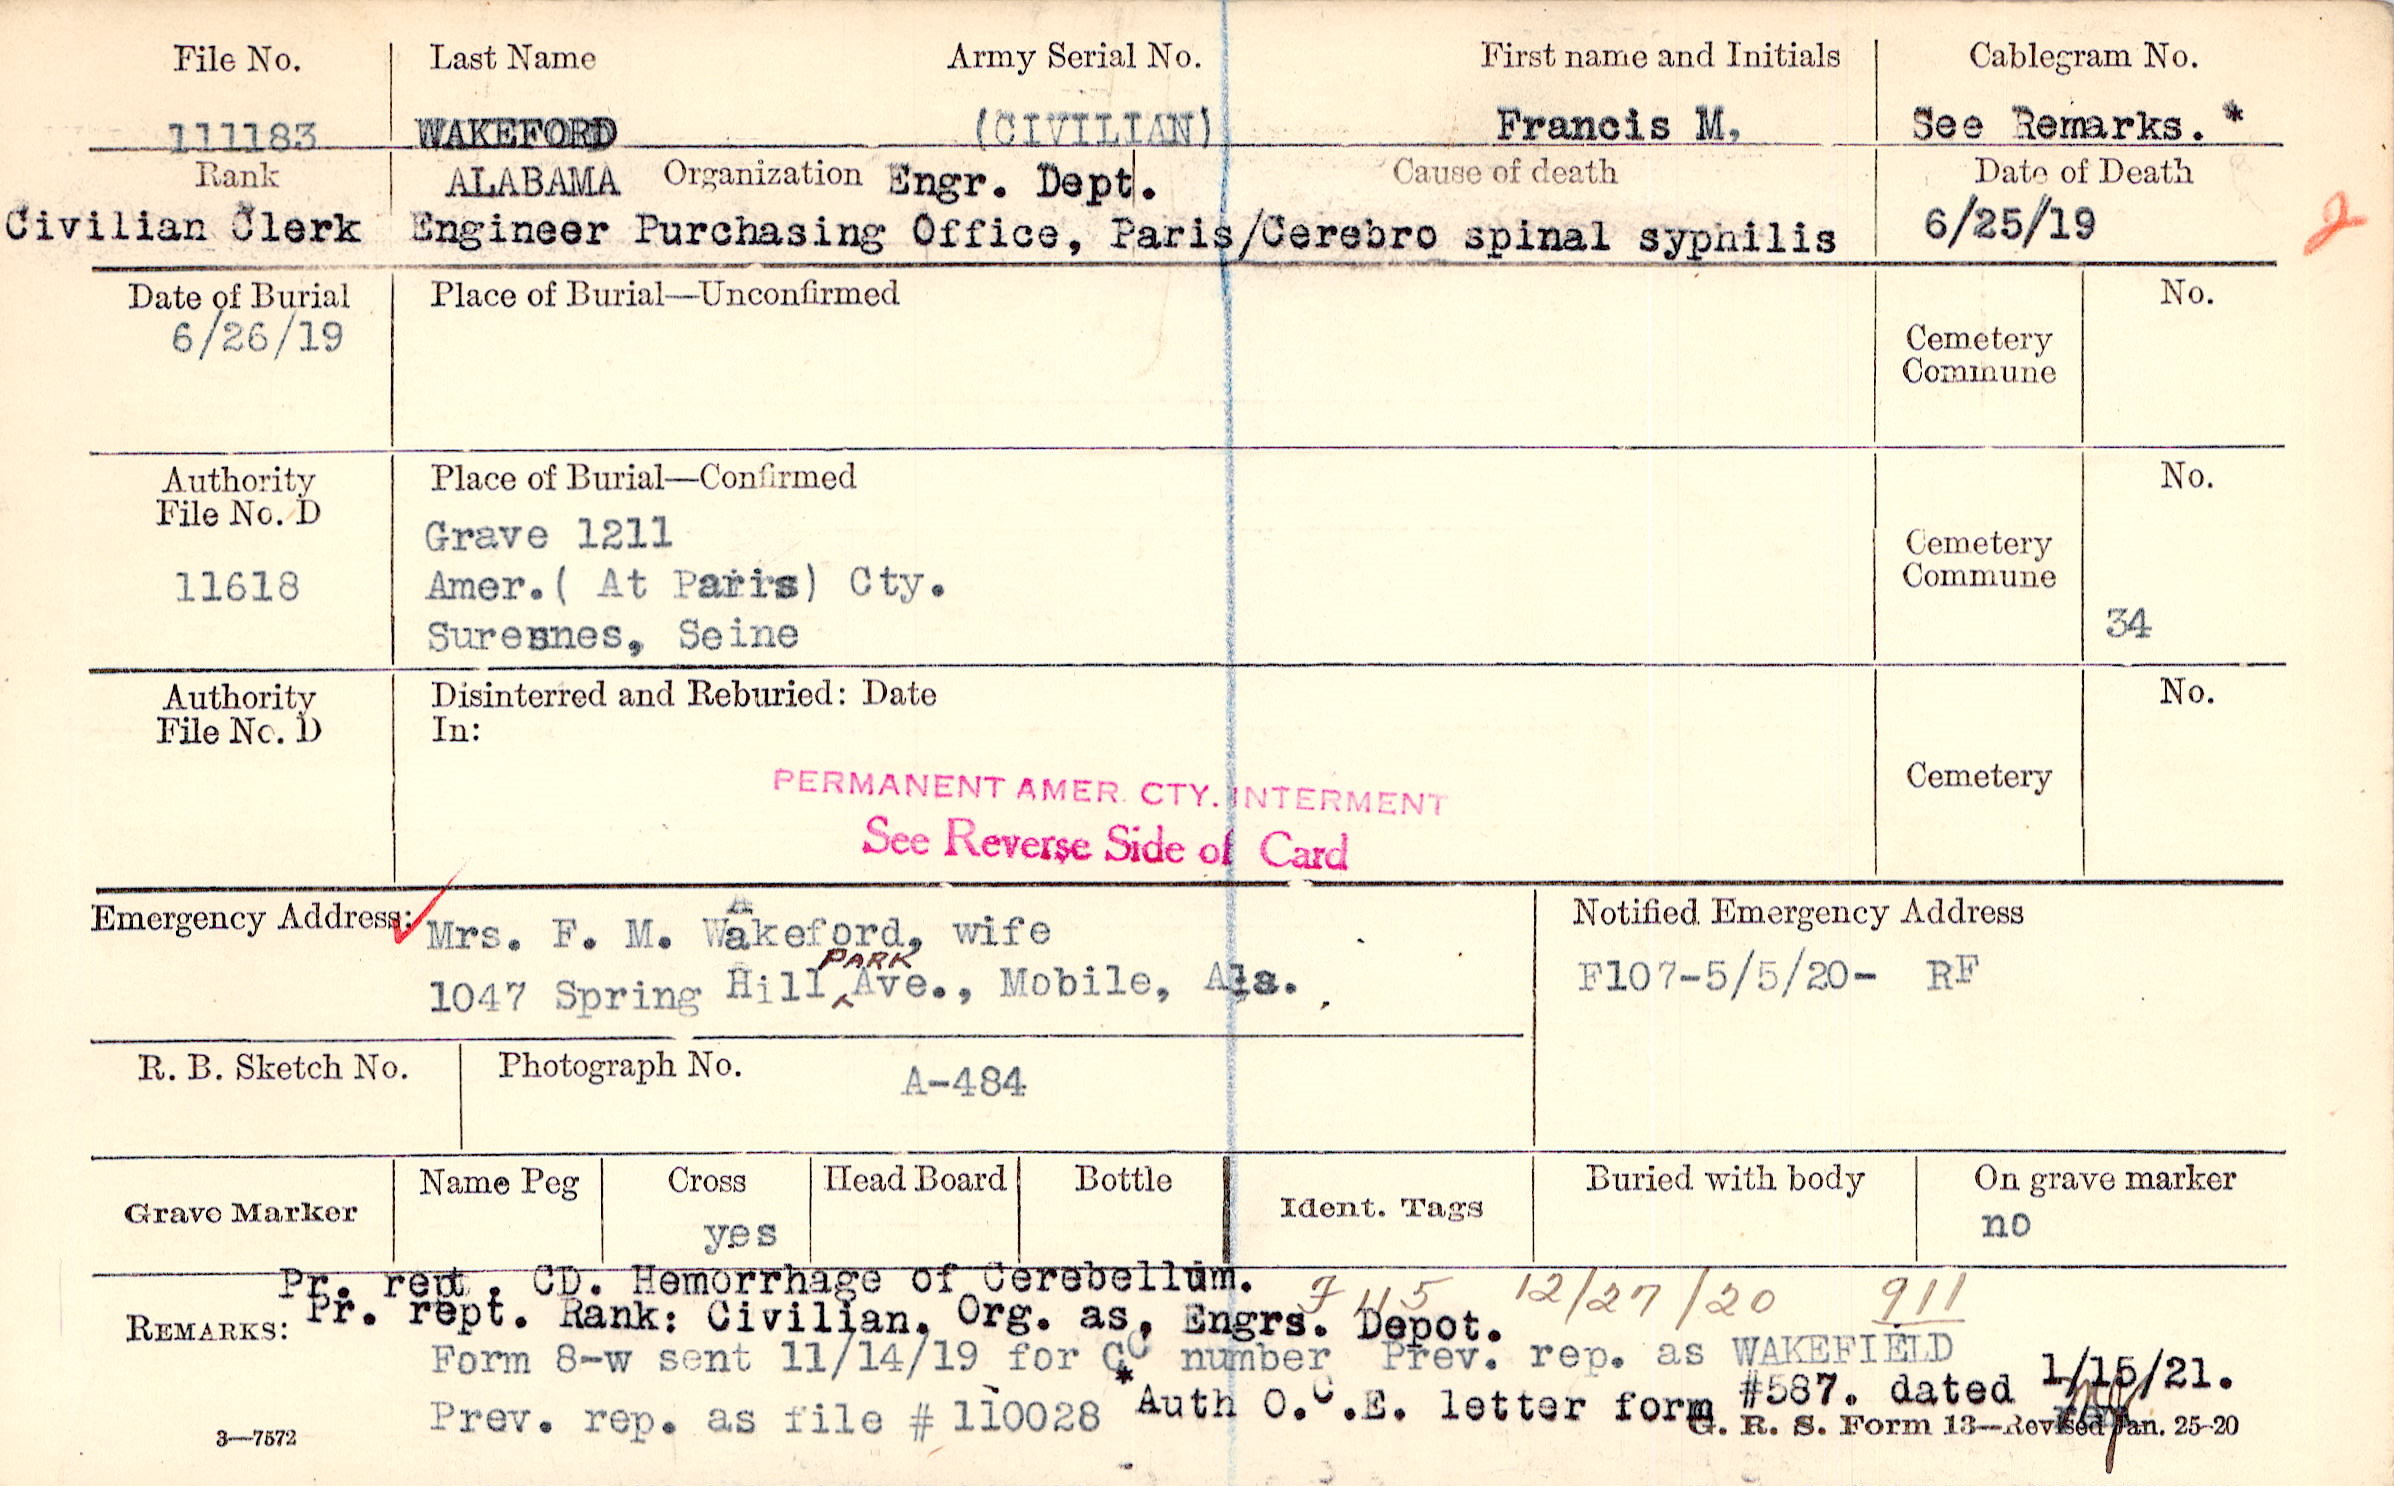 File No. Last Name Army Serial No. First name and Initials Cablegram No.
111183 WAKEFORD (CIVILIAN) Francis M, See Remarks. *
Rank ALABAMA Organization Engr. Dept. Cause of death Date of Death
Civilian Clerk Engineer Purchasing Office, Paris/Cerebro spinal syphilis 6/25/19
2
Date of Burial Place of Burial—Unconfirmed No.
6/26/19
Cemetery
Commune
Authority Place of Burial—Confirmed No.
File No. D
Grave 1211
11618 Amer.( At Paris) Cty.
Suresnes, Seine
Cemetery
Commune
34
Authority Disinterred and Reburied: Date No.
File No. D In:
Cemetery
PERMANENT AMER. CTY. INTERMENT
See Reverse Side of Card
Emergency Address: Mrs. F. M. Wakeford, wife
1047 Spring Hill PARK Ave., Mobile, Ala.
Notified Emergency Address
F107-5/5/20- RF
R. B. Sketch No. Photograph No. A-484
Grave Marker Name Peg Cross Head Board Bottle Ident. Tags Buried with body On grave marker
yes no
Pr. rept. CD. Hemorrhage of Cerebellum. F 115 12/27/20 911
REMARKS: Pr. rept. Rank: Civilian. Org. as, Engrs. Depot.
Form 8-w sent 11/14/19 for CC number Prev. rep. as WAKEFIELD
*Auth O.C.E. letter form #587. dated 1/15/21.
Prev. rep. as file # 110028
3—7572 G. R. S. Form 13—Revised Jan. 25-20